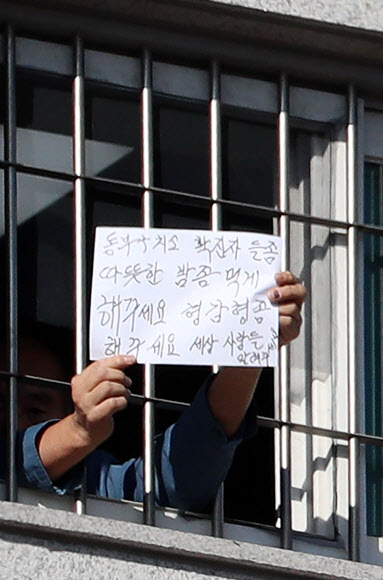 동부구치소 확진자 들좀
따뜻한 밥좀 먹게
해주세요 형감형좀
해주세요 세상 사람들
알려주세요